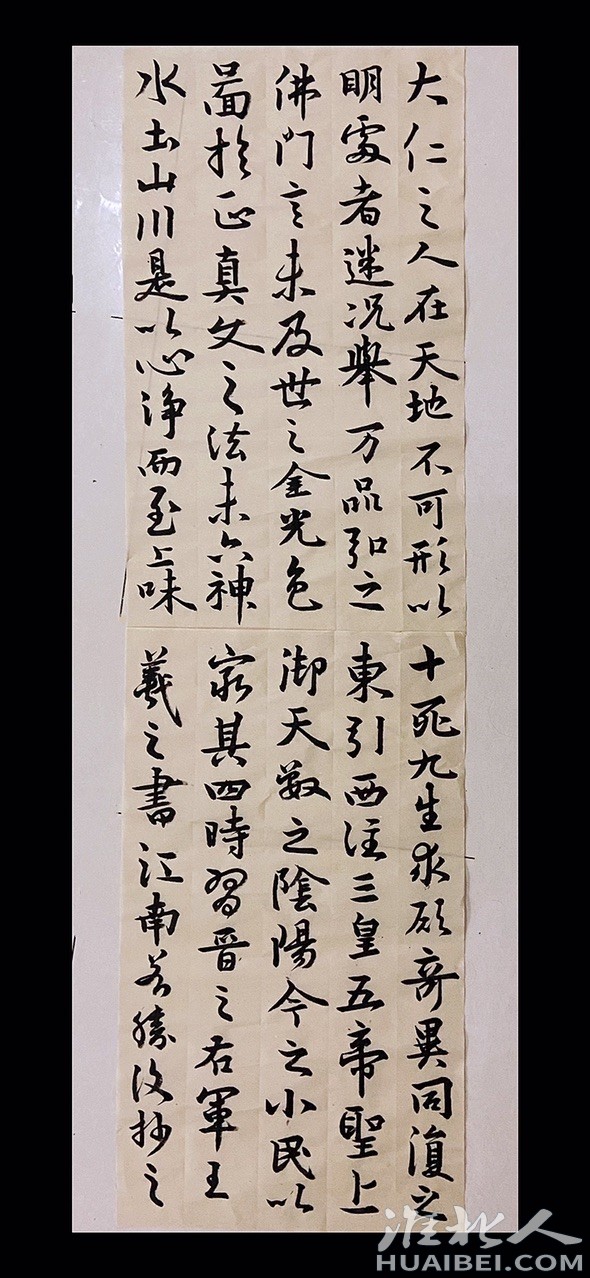 大仁之人在天地不可形以十死九生求願奇異同復之
明處者迷況舉万品弘之東引西注三皇五帝聖上
佛門言未及世之金光色御天數之陰陽今之小民以
於正真文之法未六神其四時習晉之右軍王
水土山川是以心淨而至上味羲之書江南抄之
淮北人
HUAIBEI.COM